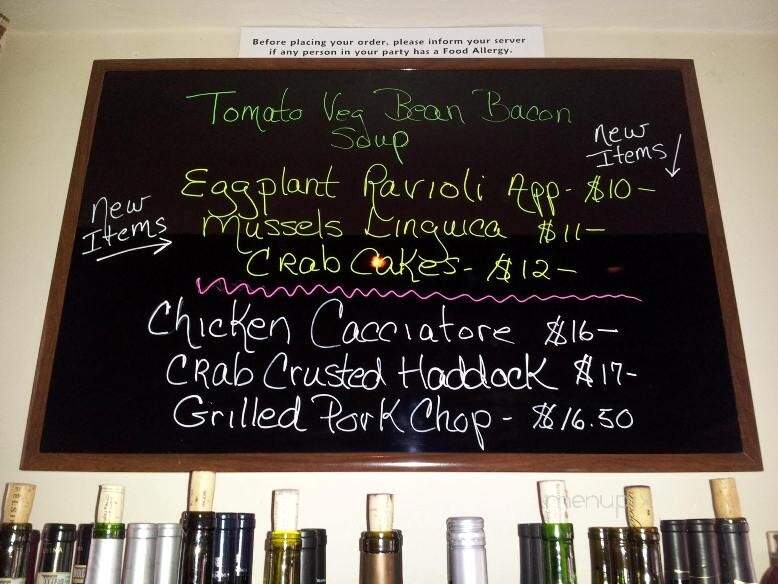 Before placing your order, please inform your server
if any person in your party has a Food Allergy.
Tomato Veg Bean Bacon
Soup
new
Items
Eggplant Ravioli App- $10-
new
Items
Mussels Linguica $11-
Crab Cakes- $12-
Chicken Cacciatore $16-
Crab Crusted Haddock $17-
Grilled Pork Chop- $16.50
menupix